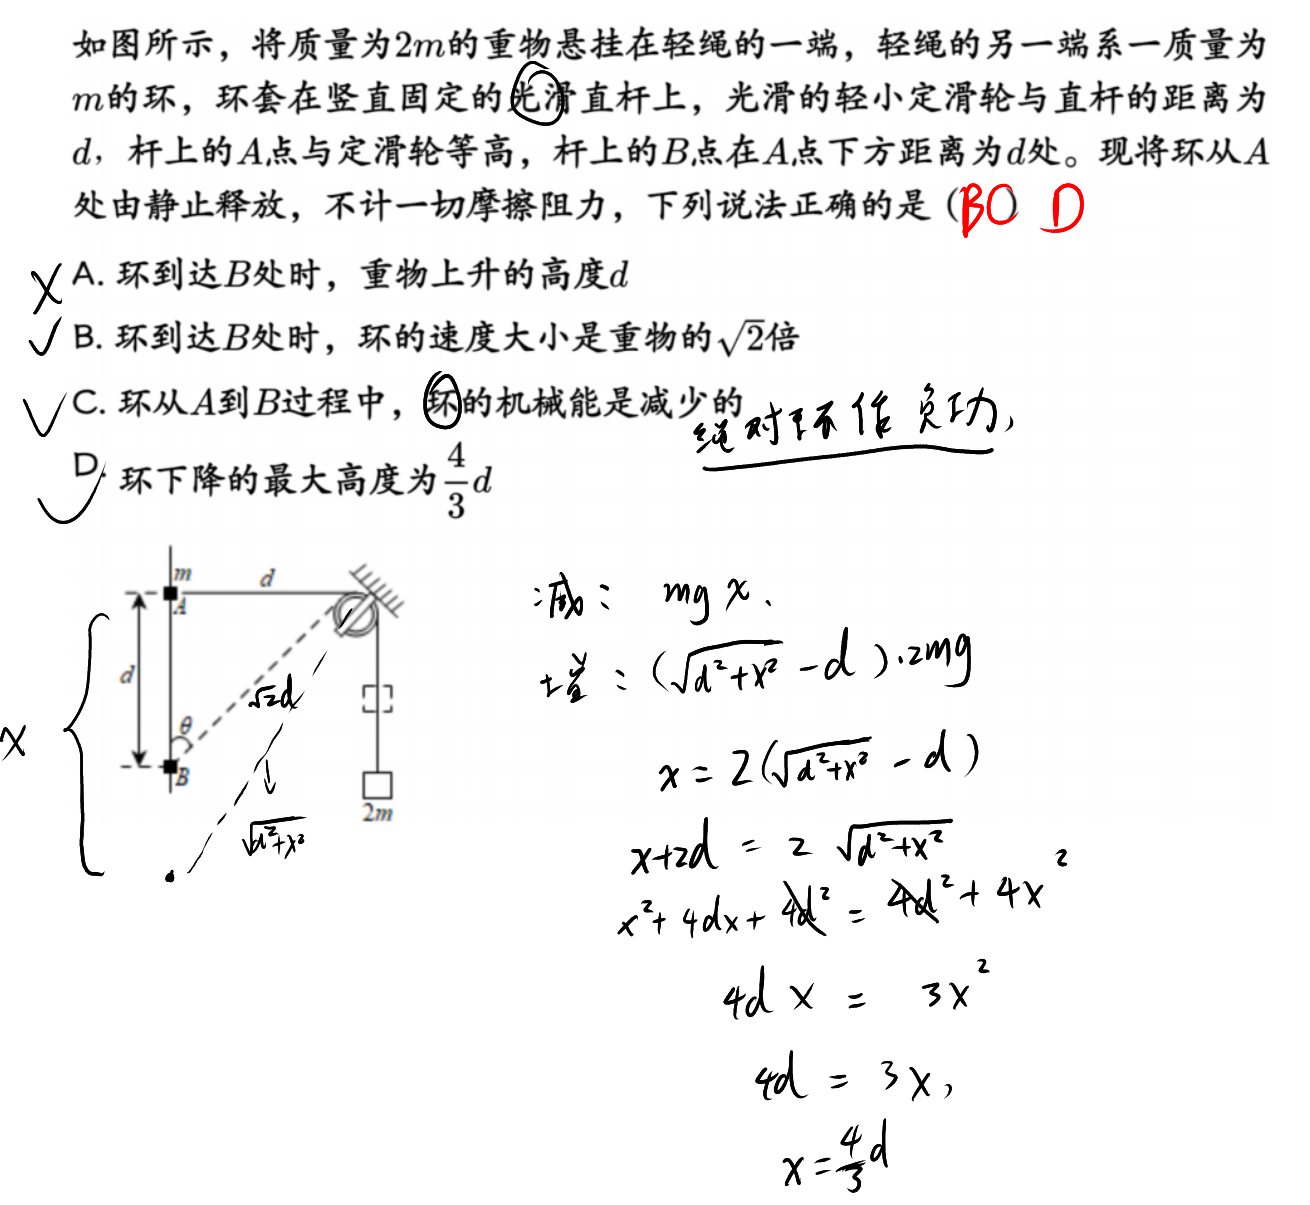 如图所示，将质量为2m的重物悬挂在轻绳的一端，轻绳的另一端系一质量为
m的环，环套在竖直固定的光滑直杆上，光滑的轻小定滑轮与直杆的距离为
d，杆上的A点与定滑轮等高，杆上的B点在A点下方距离为d处。现将环从A
处由静止释放，不计一切摩擦阻力，下列说法正确的是（BC）D
× A. 环到达B处时，重物上升的高度d
√ B. 环到达B处时，环的速度大小是重物的√2倍
√ C. 环从A到B过程中，环的机械能是减少的
绳对环作负功，
√ D. 环下降的最大高度为4/3 d
m
d
A
d
√2d
θ
B
x
2m
√d²+x²
减： mgx.
增：(√d²+x² - d)·2mg
x = 2(√d²+x² - d)
x+2d = 2 √d²+x²
x²+4dx+4d² = 4d²+4x²
4dx = 3x²
4d = 3x,
x = 4/3 d